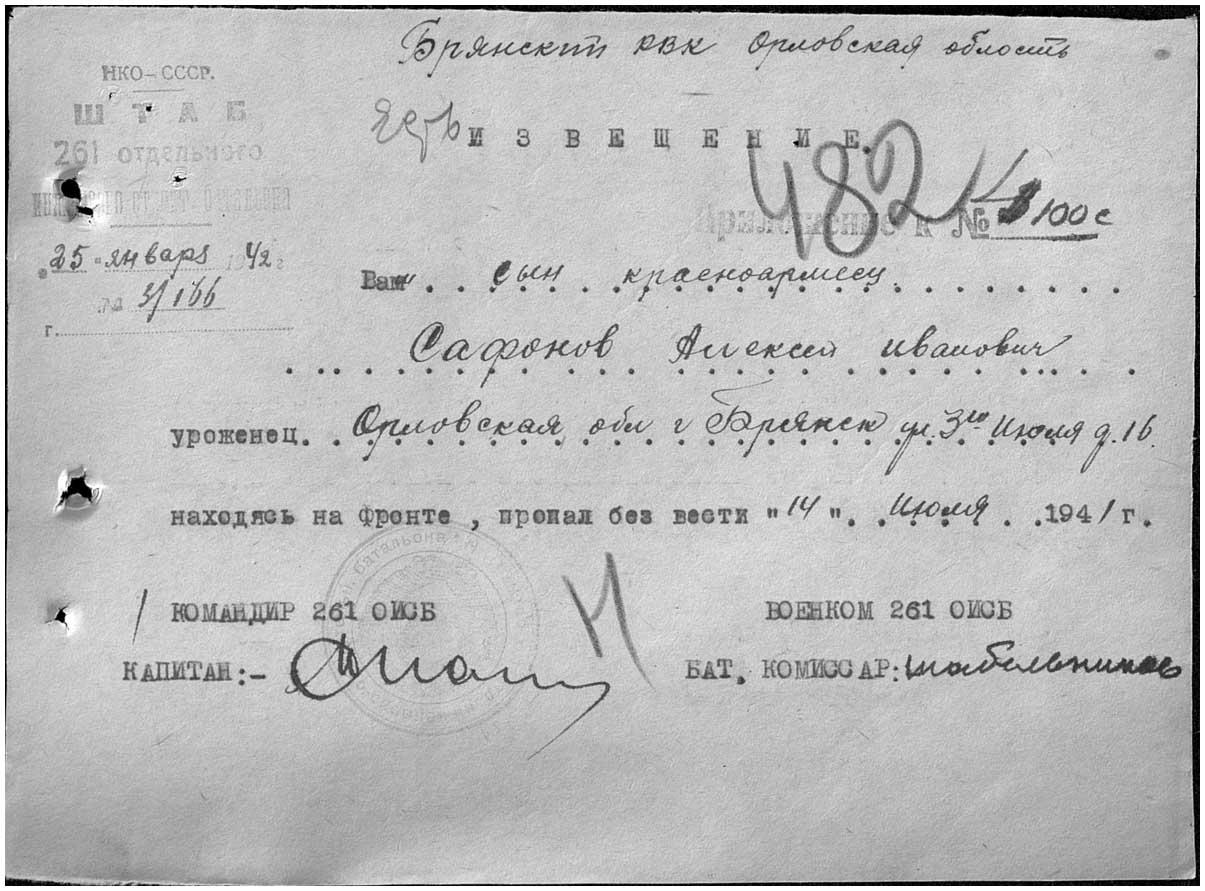 Брянский РВК Орловская область
НКО-СССР.
ШТАБ
261 отдельного
"25" января 1942 г
№ 3/166
г.
Есть
ИЗВЕЩЕНИЕ.
482
Приложение к № 100 с
Ваш сын красноармеец
Сафонов Алексей Иванович
уроженец. Орловская обл г Брянск ул. 3го Июля д. 16.
находясь на фронте, пропал без вести "14". Июля 1941 г.
КОМАНДИР 261 ОИСБ
ВОЕНКОМ 261 ОИСБ
КАПИТАН:-
БАТ. КОМИССАР: Шабельников